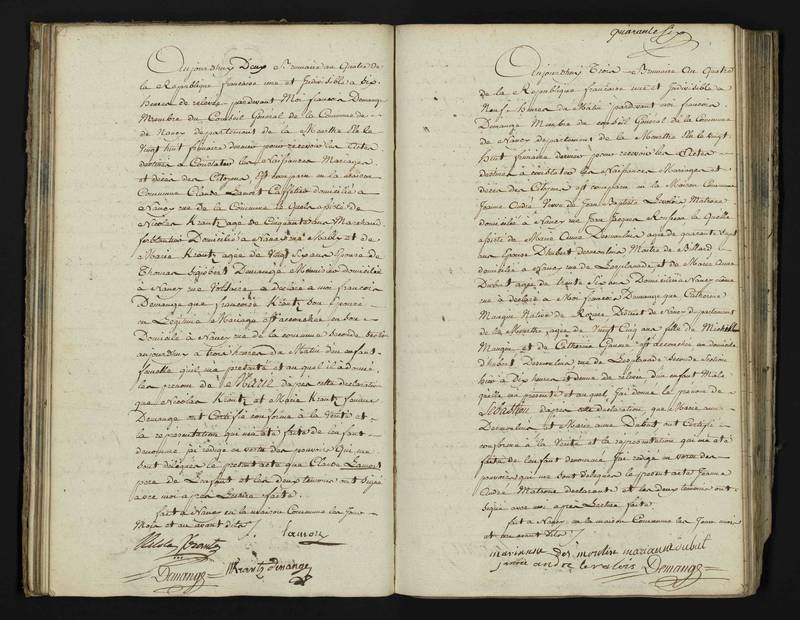 Aujourdhuy Deux Brumaire au Quatre de
la Republique francoise une et Indivisible a six
heures de relevée pardevant Moi francois Demange
Membre du Conseil General de la Commune de
de Nancy departement de la Meurthe Elu le
vingt huit frimaire dernier pour recevoir les Actes
destinés a Constater les Naissances Mariages
et déces des Citoyens Est comparu en la maison
Commune Claude Lamort Caffetier domicilié a
Nancy rue de la Commune lequel assisté de
Nicolas Krantz agé de Cinquante ans Marchand
Domicilié a Nancy rue et de
Marie Krantz agée de vingt six ans Epouse de
Thomas Demange Menuisier domicilié
a Nancy rue Voltaire a déclaré a moi francois
Demange que francoise Krantz son Epouse
en Legitime Mariage est accouchée en son
Domicile a Nancy rue de la commune seconde section
aujourdhuy a trois heures du Matin d'un enfant
femelle qu'il ma présenté et au quel il a donné
les prenoms de Marie d'apres cette declaration
que Nicolas Krantz et Marie Krantz femme
Demange ont Certifié conforme à la Verité et
la representation qui m'a été faite de l'enfant
denommé j'ai rédigé en vertu des pouvoirs Qui me
sont délégués le present acte que Claude Lamort
pere de l'enfant et les deux temoins ont signé
avec moi apres Lecture faite.
fait a Nancy en la maison Commune les jour
Mois et an avant dits
Nicolas Krantz lamort
Demange M Krantz demange
quarante six
Aujourdhuy Trois Brumaire au Quatre
de la Republique francoise une et Indivisible a
Neuf heures du Matin pardevant moi francois
Demange Membre du conseil General de la Commune
de Nancy departement de la Meurthe Elu le vingt
huit frimaire dernier pour recevoir les Actes
destinés a constater les Naissances Mariages et
déces des Citoyens est comparu en la Maison Commune
Jeanne André Veuve de Jean Baptiste Levalois Matrone
domiciliée a Nancy rue Jean Jacques Rousseau la quelle
assistée de Marie Anne Desmoulin agée de quarante
ans Epouse D'hubert Desmoulin Maitre de Billard
domiciliée a Nancy rue de L'esplanade et de Marie Anne
Dubut agée de trente six ans Domiciliée a Nancy même
rue a declaré a Moi francois Demange que Catherine
Mangin Native de Rozieres District de Nancy departement
de la Meurthe agée de Vingt Cinq ans fille de Michel
Mangin et de Catherine est accouchée au domicile
d'hubert Desmoulin rue de L'esplanade Seconde Section
hier a Dix heures et demie de relevée d'un enfant Male
qu'elle ma presenté et au quel j'ai donné le prénom de
Sebastien d'apres cette déclaration que Marie anne
Desmoulin et Marie anne Dubut ont Certifié
conforme a la Verité et la representation qui m'a été
faite de l'enfant denommé j'ai redigé en vertu des
pouvoirs qui me sont delegués le present acte que Jeanne
André Matrone declarante et les deux temoins ont
signé avec moi apres Lecture faite
fait a Nancy en la maison Commune les jour mois
et an avant dits
marianne des moulin marianne dubut
jeanne andre levalois Demange